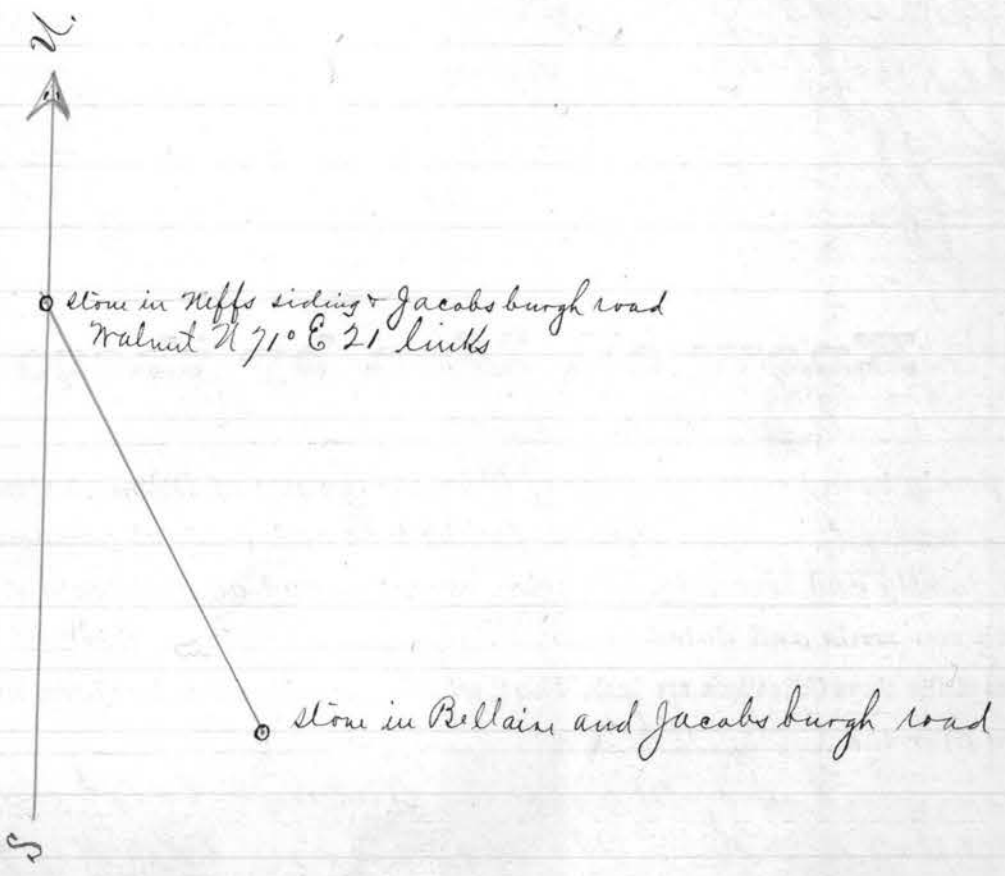 N.
stone in Neffs siding & Jacobsburgh road
Walnut N 71° E 21 links
stone in Bellaire and Jacobsburgh road
S